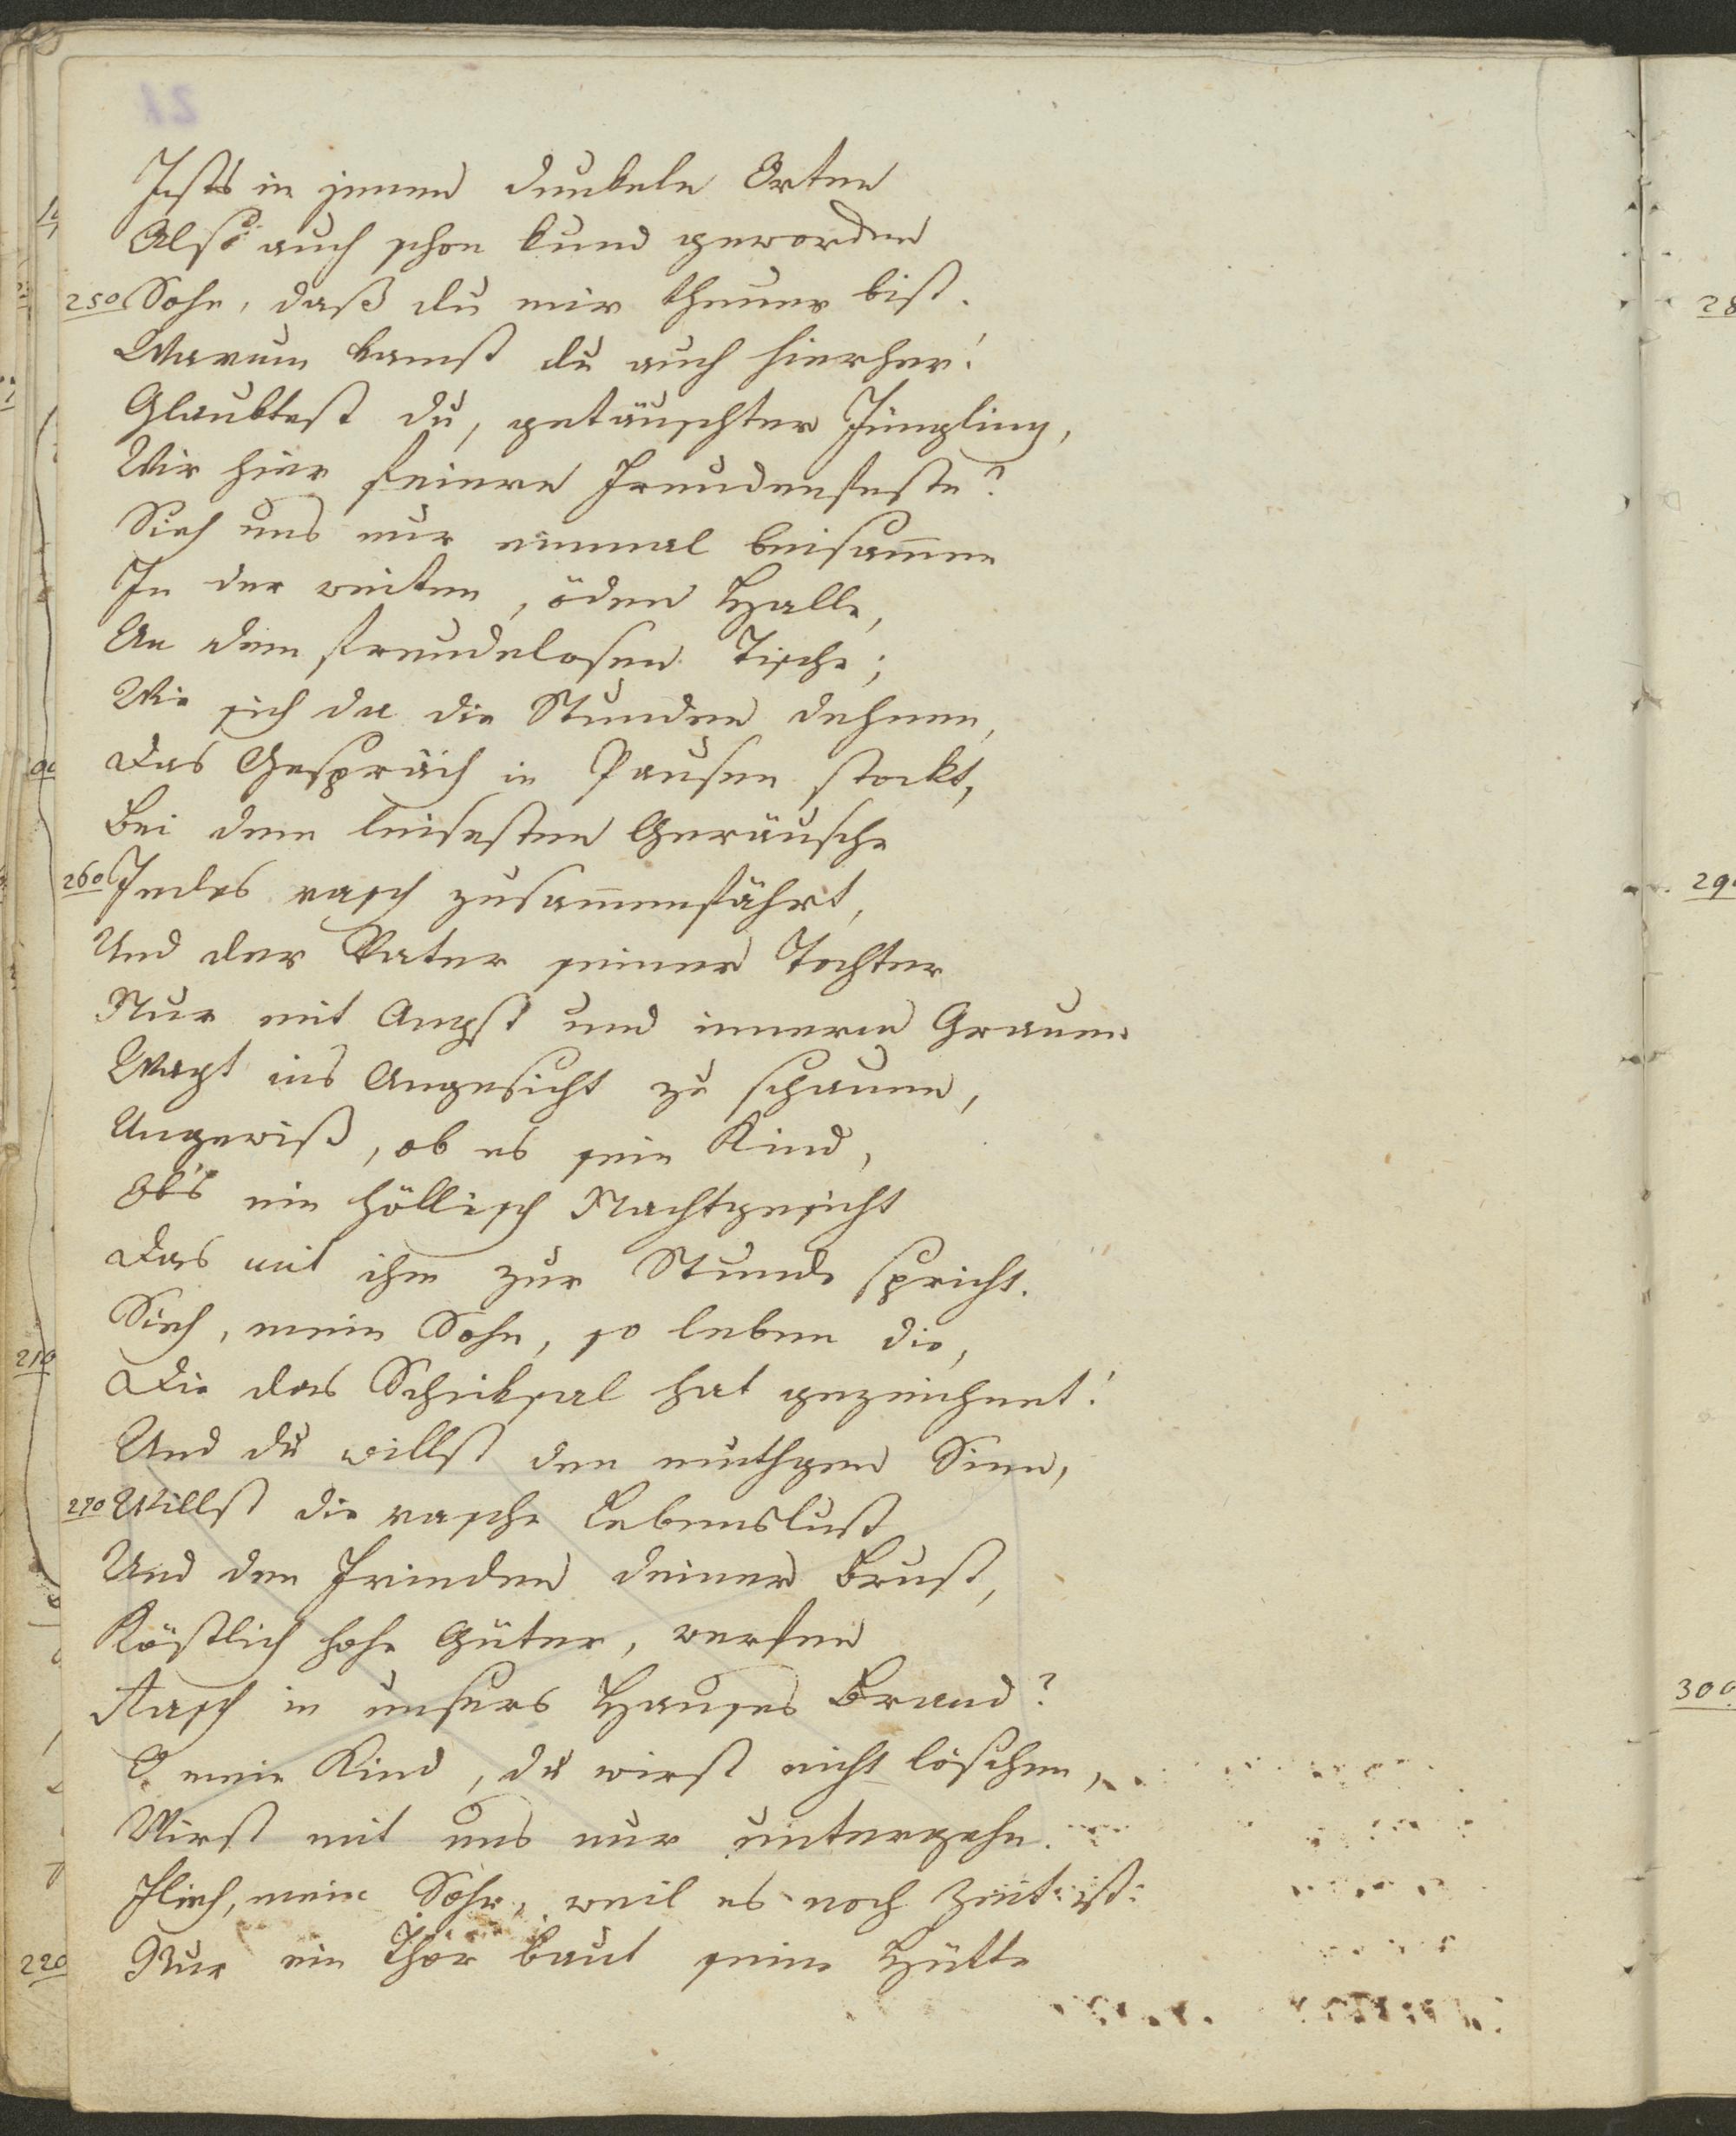 21
Ists in jenen dunkeln Orten
Also auch schon kund geworden
250 Sohn, daß du mir theuer bist.
Warum kamst du auch hierher!
Glaubtest du, getäuschter Jüngling,
Wir hier feiern Freudenfeste?
Sieh uns nur einmal beisam̄en
In der weiten, öden Halle,
An dem freudelosen Tische;
Wie sich da die Stunden dehnen,
Das Gespräch in Pausen stockt,
Bei dem leisesten Geräusche
260 Jedes rasch zusam̄enfährt,
Und der Vater seiner Tochter
Nur mit Angst und innerm Grauen
Wagt ins Angesicht zu schauen,
Ungewiß, ob es sein Kind,
Ob's ein höllisch Nachtgesicht
Das mit ihm zur Stunde spricht.
Sieh, mein Sohn, so leben die,
Die das Schiksal hat gezeichnet!
Und du willst den muthgen Sinn,
270 Willst die rasche Lebenslust
Und den Frieden deiner Brust,
Köstlich hohe Güter, werfen
Rasch in unsers Hauses Brand?
O mein Kind, du wirst nicht löschen,
Wirst mit uns nur untergehn.
Flieh, mein Sohn, weil es noch Zeit ist:
Nur ein Thor baut seine Hütte
210
220
28
29
300